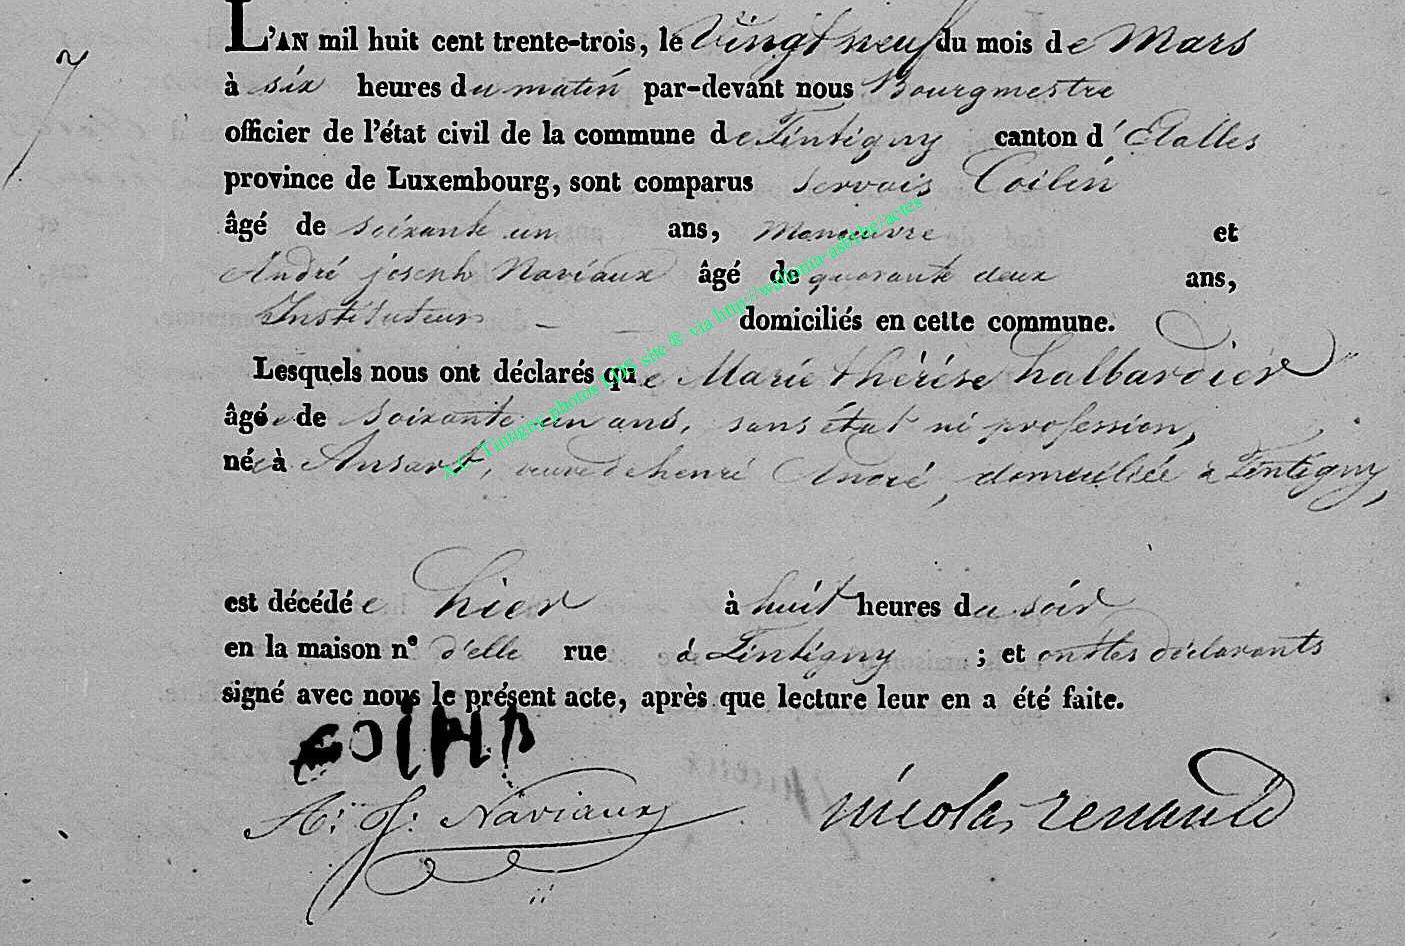 7
L'AN mil huit cent trente-trois, le Vingt neuf du mois de Mars
à six heures du matin par-devant nous Bourgmestre
officier de l'état civil de la commune de Tintigny canton d'Etalles
province de Luxembourg, sont comparus Servais Coilin
âgé de soixante un ans, Manœuvre et
André joseph Naviaux âgé de quarante deux ans,
Instituteur domiciliés en cette commune.
Lesquels nous ont déclarés que Marie thérèse halbardier
âgée de soixante un ans, sans état ni profession,
née à Ansart, veuve de henri André, domiciliée à Tintigny,
est décédée hier à huit heures du soir
en la maison n° d'elle rue à Tintigny ; et ont les déclarants
signé avec nous le présent acte, après que lecture leur en a été faite.
A: J: Naviaux
nicolas renauld
A.C. Tintigny photos LDS site ® via http://wallonia-asbl.be/actes